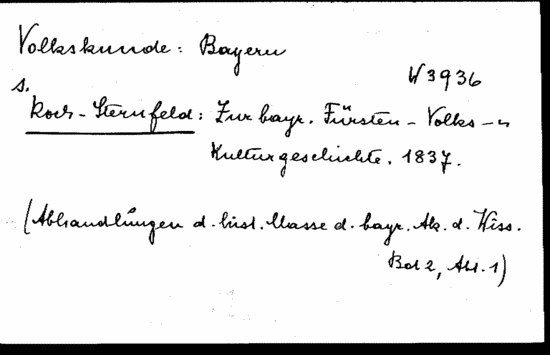 Volkskunde: Bayern
W 3936
s.
Koch-Sternfeld: Zur bayr. Fürsten-Volks-u
Kulturgeschichte. 1837.
(Abhandlungen d. hist. Classe d. bayr. Ak. d. Wiss.
Bd 2, Abt. 1)